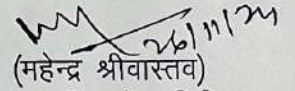 26/11/24
(महेन्द्र श्रीवास्तव)